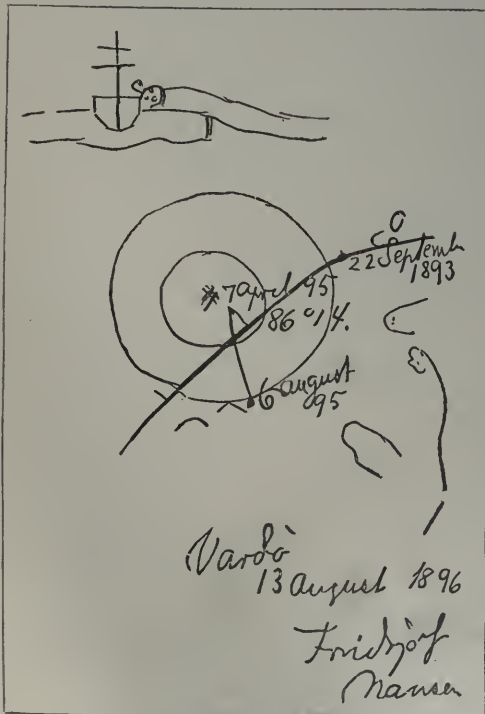 22 Septemb
1893
7 April 95
86° 14.
6 august
95
Vardö
13 august 1896
Fridtjof
Nansen